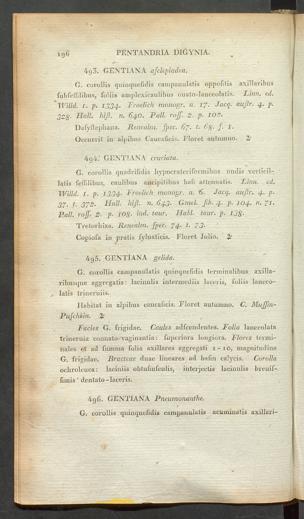 196 PENTANDRIA DIGYNIA.
493. GENTIANA asclepiadea.
G. corollis quinquefidis campanulatis oppositis axillaribus
subsessilibus, foliis amplexicaulibus ovato-lanceolatis. Linn. ed.
Willd. 1. p. 1334. Froelich monogr. n. 17. Jacq. austr. 4. p.
328. Hall. hist. n. 640. Pall. ross. 2. p. 102.
Dasystephana. Renealm. spec. 67. t. 68. f. 1.
Occurrit in alpibus Caucasicis. Floret autumno. ♃
494. GENTIANA cruciata.
G. corollis quadrifidis hypocrateriformibus nudis verticil-
latis sessilibus, caulibus ancipitibus basi attenuatis. Linn. ed.
Willd. 1. p. 1354. Froelich monogr. n. 6. Jacq. austr. 4. p.
37. t. 372. Hall. hist. n. 643. Gmel. sib. 4. p. 104. n. 71.
Pall. ross. 2. p. 108. ind. taur. Habl. taur. p. 138.
Tretorhiza. Renealm. spec. 74. t. 73.
Copiosa in pratis sylvaticis. Floret Julio. ♃
495. GENTIANA gelida.
G. corollis campanulatis quinquefidis terminalibus axilla-
ribusque aggregatis: lacinulis intermediis laceris, foliis lanceo-
latis trinerviis.
Habitat in alpibus caucasicis. Floret autumno. C. Mussin-
Puschkin. ♃
Facies G. frigidae. Caules adscendentes. Folia lanceolata
trinervia connato-vaginantia: superiora longiora. Flores termi-
nales et ad summa folia axillares aggregati 1-10, magnitudine
G. frigidae. Bracteae duae lineares ad basin calycis. Corolla
ochroleuca: laciniis obtusiusculis, interjectis lacinulis brevis-
simis dentato-laceris.
496. GENTIANA Pneumonanthe.
G. corollis quinquefidis campanulatis acuminatis axillari-